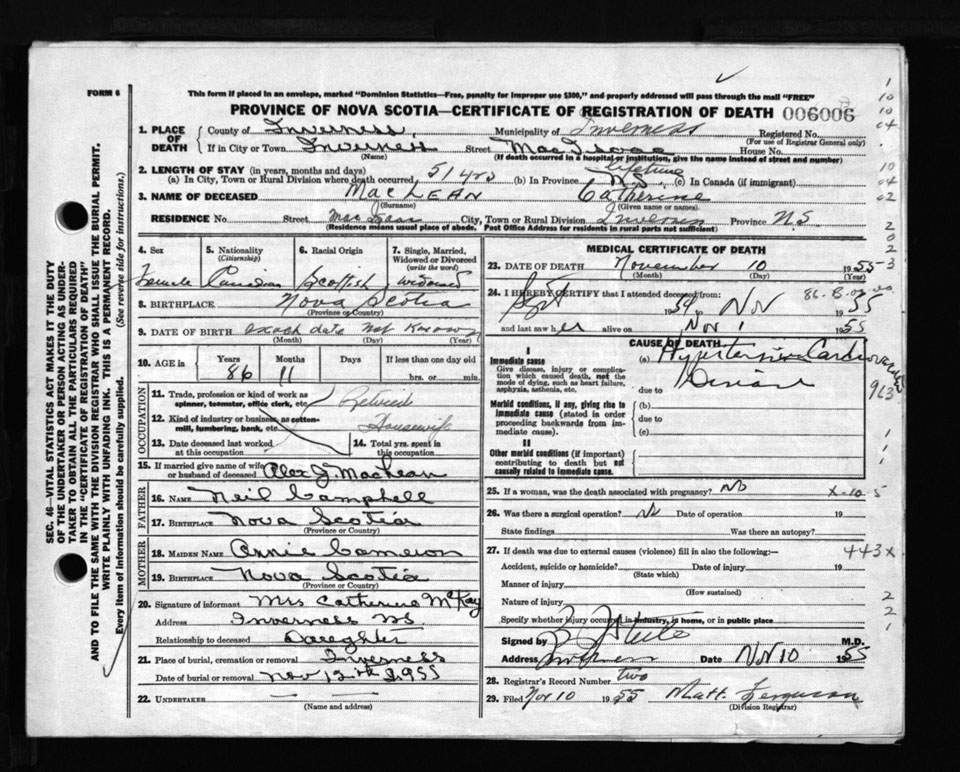 FORM 6
This form if placed in an envelope, marked "Dominion Statistics—Free, penalty for improper use $300," and properly addressed will pass through the mail "FREE"
PROVINCE OF NOVA SCOTIA—CERTIFICATE OF REGISTRATION OF DEATH 006006
1. PLACE OF DEATH County of Inverness, Municipality of Inverness Registered No.
(For use of Registrar General only)
If in City or Town Inverness Street MacIsaac House No.
(Name) (If death occurred in a hospital or institution, give the name instead of street and number)
2. LENGTH OF STAY (in years, months and days) lifetime
(a) In City, Town or Rural Division where death occurred 51 yrs (b) In Province N.S. (c) In Canada (if immigrant)
3. NAME OF DECEASED MacLEAN Catherine
(Surname) (Given name or names)
RESIDENCE No. Street MacIsaac City, Town or Rural Division Inverness Province N.S
(Residence means usual place of abode. Post Office Address for residents in rural parts not sufficient)
4. Sex 5. Nationality 6. Racial Origin 7. Single, Married, Widowed or Divorced
(Citizenship) (write the word)
Female Canadian Scottish widowed
8. BIRTHPLACE Nova Scotia
(Province or Country)
9. DATE OF BIRTH exact date not Known
(Month) (Day) (Year)
10. AGE in Years Months Days If less than one day old
86 11 hrs. or min.
OCCUPATION
11. Trade, profession or kind of work as spinner, teamster, office clerk, etc. Retired
12. Kind of industry or business, as cotton-mill, lumbering, bank, etc. Housewife
13. Date deceased last worked at this occupation
14. Total yrs. spent in this occupation
15. If married give name of wife or husband of deceased Alex J. MacLean
FATHER
16. NAME Neil Campbell
17. BIRTHPLACE Nova Scotia
(Province or Country)
MOTHER
18. MAIDEN NAME Annie Cameron
19. BIRTHPLACE Nova Scotia
(Province or Country)
20. Signature of informant Mrs Catherine McKay
Address Inverness NS
Relationship to deceased Daughter
21. Place of burial, cremation or removal Inverness
Date of burial or removal Nov 12th 1955
22. UNDERTAKER
(Name and address)
MEDICAL CERTIFICATE OF DEATH
23. DATE OF DEATH November 10 1955
(Month) (Day) (Year)
24. I HEREBY CERTIFY that I attended deceased from:
Sept 1954 to Nov 1955
and last saw her alive on Nov 1 1955
CAUSE OF DEATH
I
Immediate cause (a) Hypertensive Cardiovascular
Give disease, injury or complication which caused death, not the mode of dying, such as heart failure, asphyxia, asthenia, etc.
due to Disease
Morbid conditions, if any, giving rise to immediate cause (stated in order proceeding backwards from immediate cause).
(b)
due to
(c)
II
Other morbid conditions (if important) contributing to death but not causally related to immediate cause.
25. If a woman, was the death associated with pregnancy? No
26. Was there a surgical operation? No Date of operation 19
State findings Was there an autopsy?
27. If death was due to external causes (violence) fill in also the following:—
Accident, suicide or homicide? Date of injury 19
(State which)
Manner of injury
(How sustained)
Nature of injury
Specify whether injury occurred in industry, in home, or in public place
Signed by M.D.
Address Inverness Date Nov 10 1955
28. Registrar's Record Number two
29. Filed Nov 10 1955 Matt. Ferguson
(Division Registrar)
SEC. 46—VITAL STATISTICS ACT MAKES IT THE DUTY
OF THE UNDERTAKER OR PERSON ACTING AS UNDER-
TAKER TO OBTAIN ALL THE PARTICULARS REQUIRED
IN THE "CERTIFICATE OF REGISTRATION OF DEATH"
AND TO FILE THE SAME WITH THE DIVISION REGISTRAR WHO SHALL ISSUE THE BURIAL PERMIT.
WRITE PLAINLY WITH UNFADING INK. THIS IS A PERMANENT RECORD.
Every item of information should be carefully supplied. (See reverse side for instructions.)
1
10
10
04
10
04
02
2
0
2
3
963
1
1
1
X-10-5
443X
2
2
1